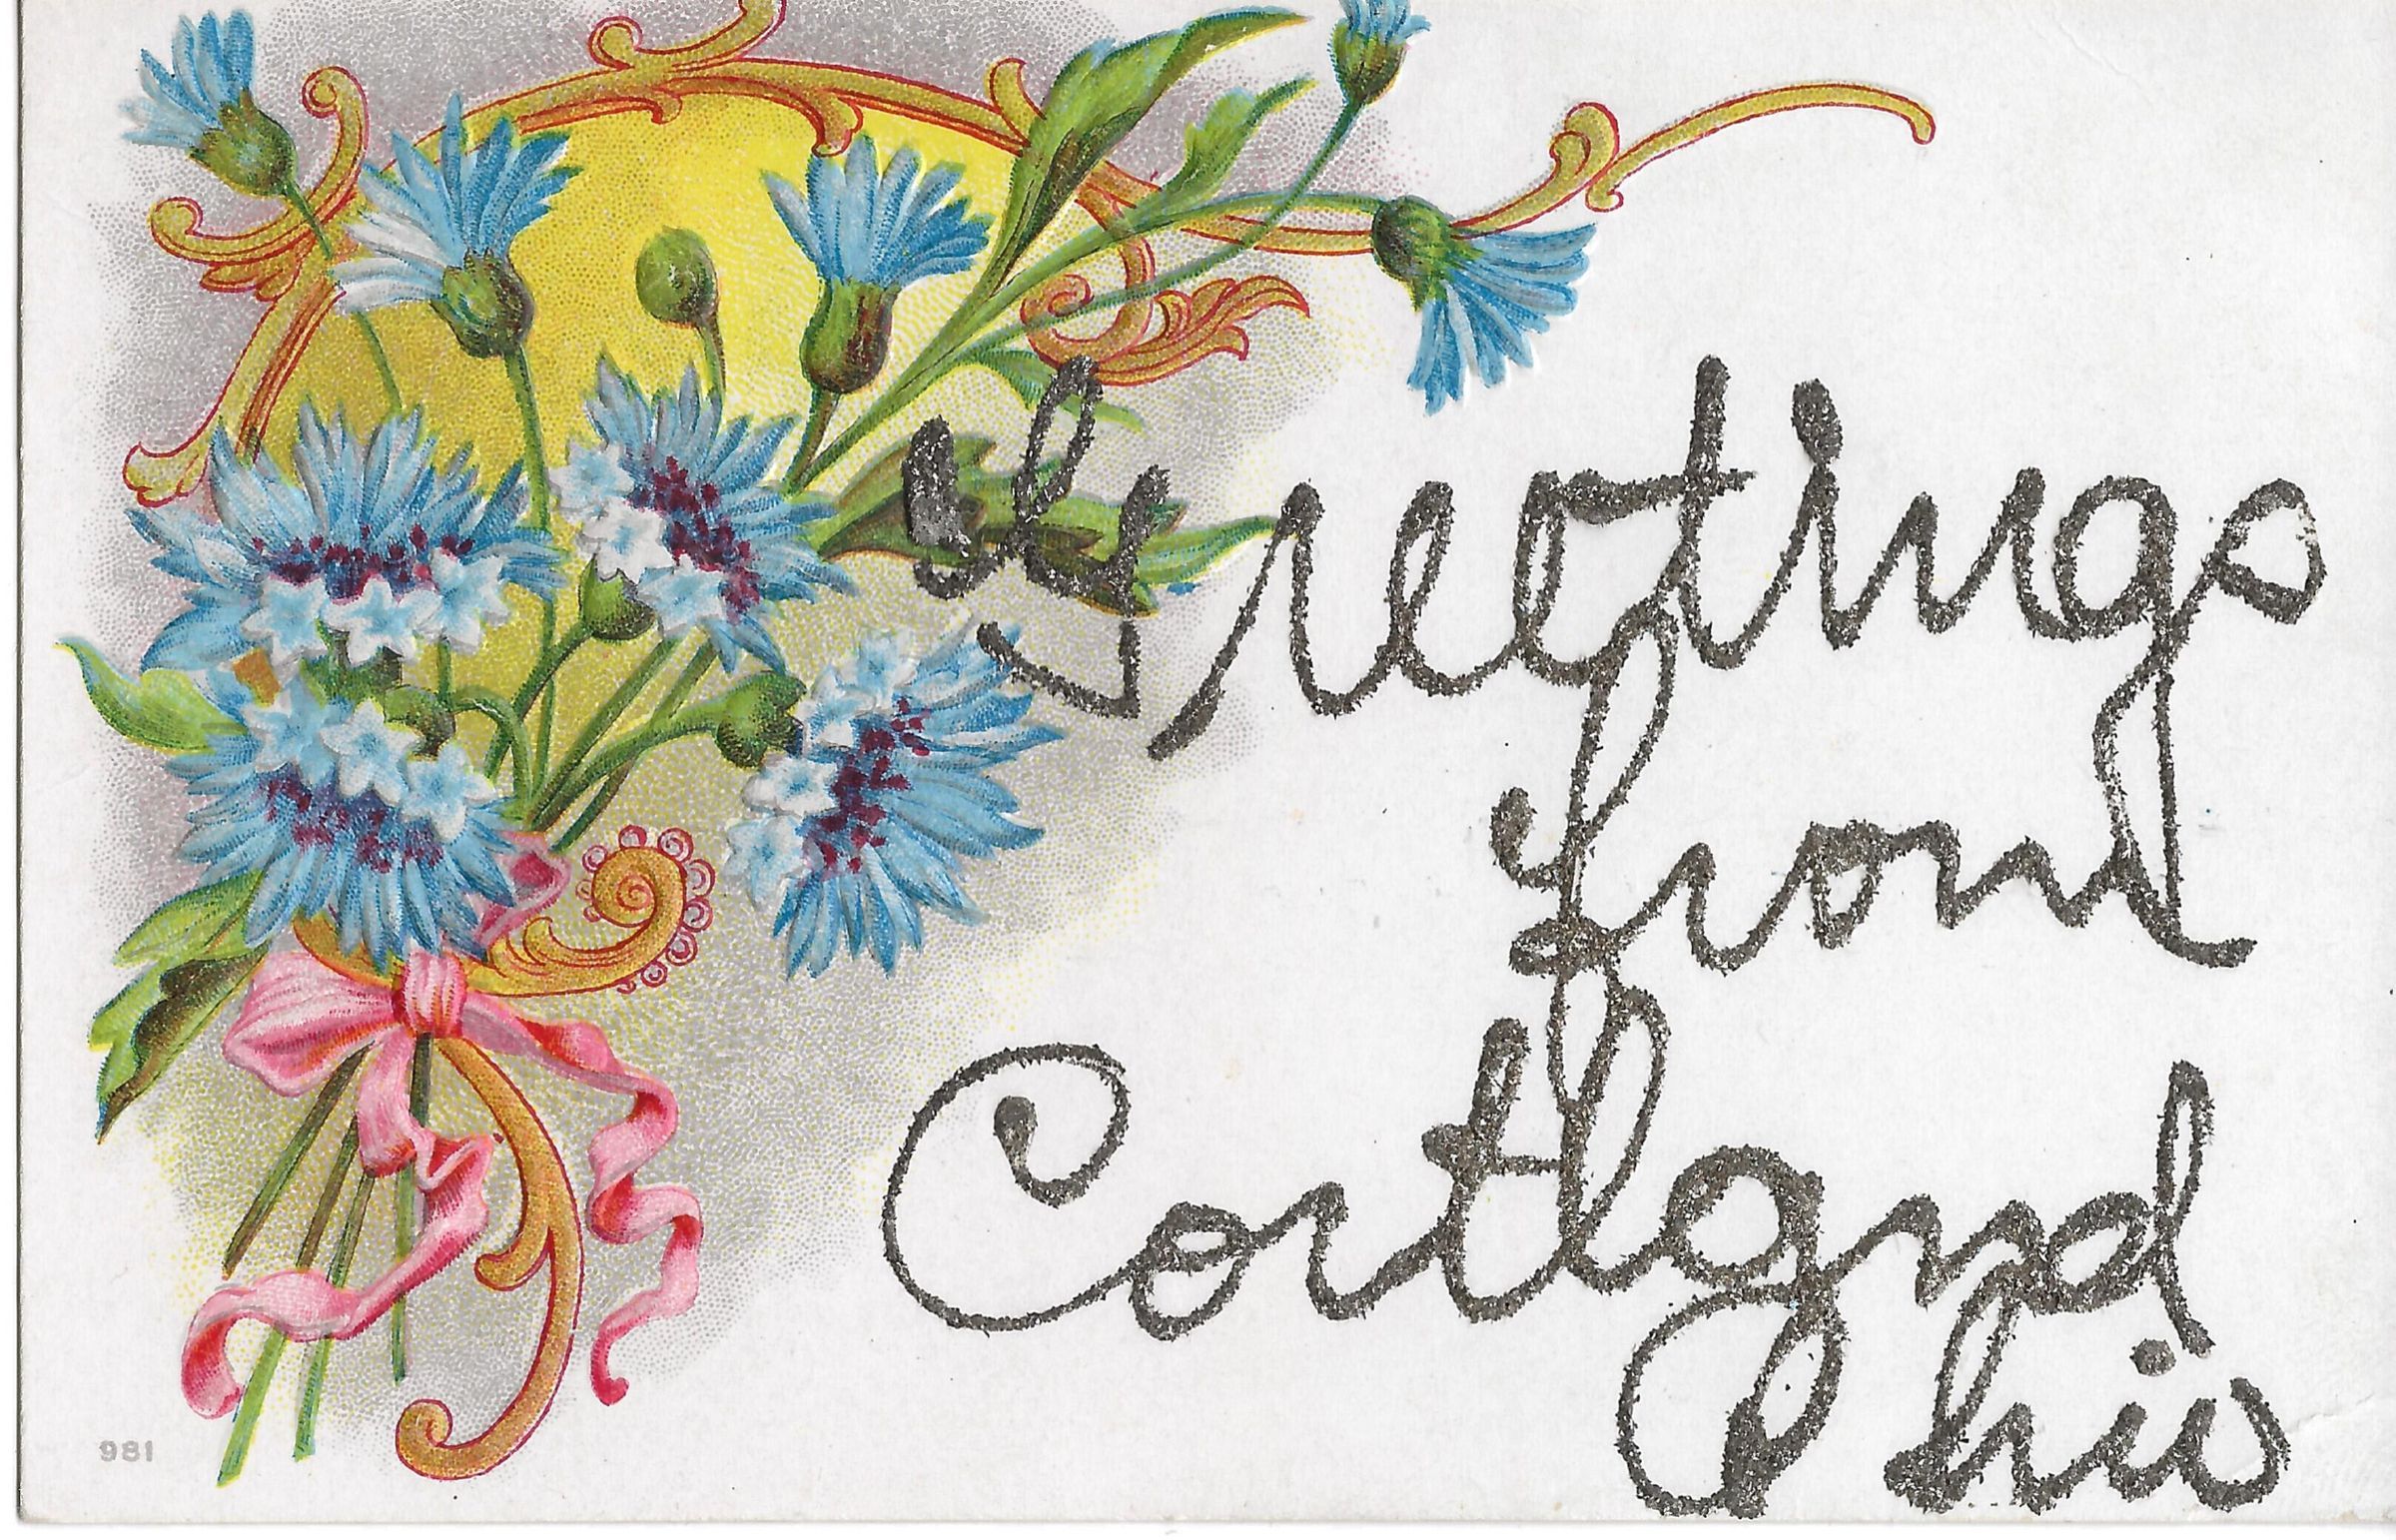 Greetings
from
Cortland
Ohio
981